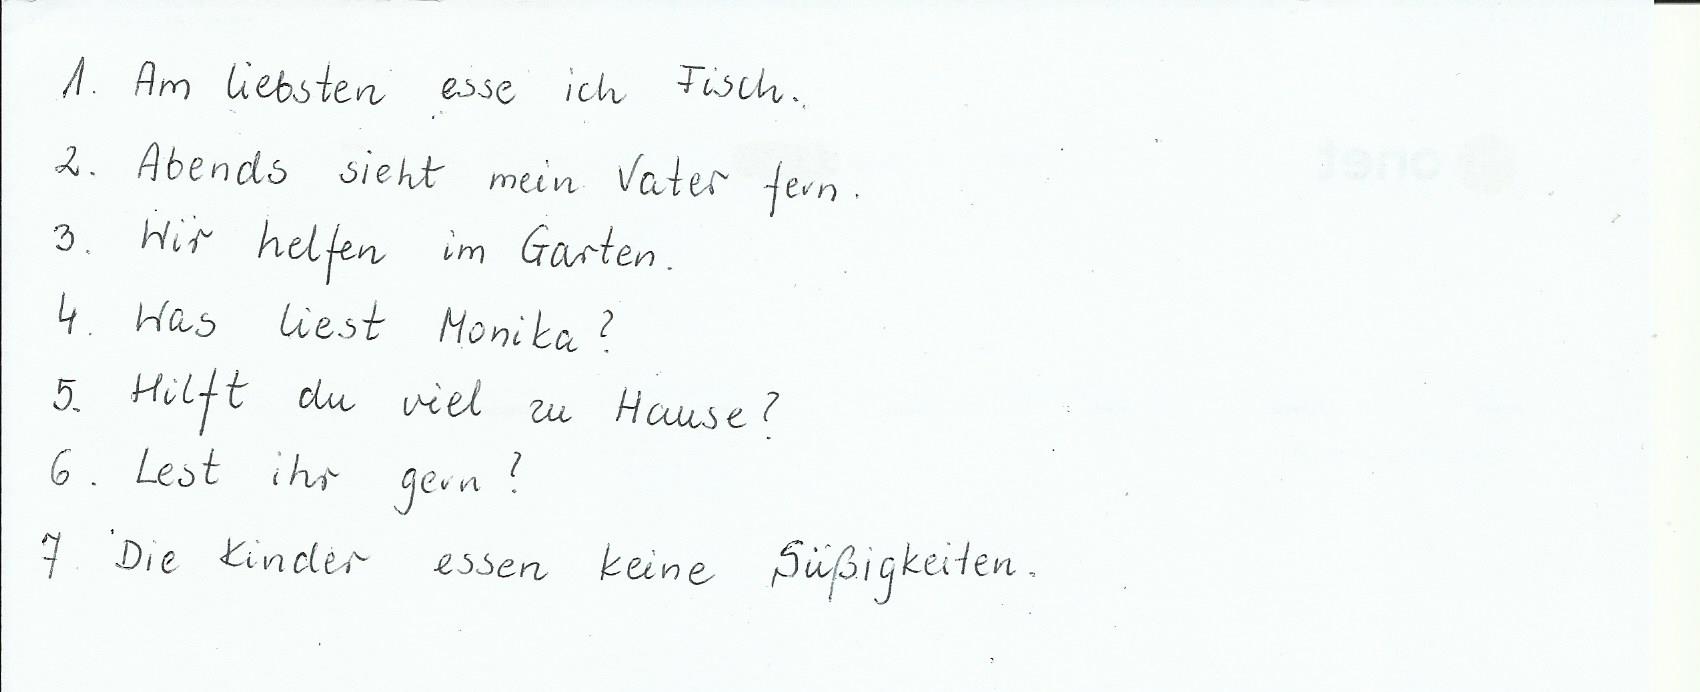 1. Am liebsten esse ich Fisch.
2. Abends sieht mein Vater fern.
3. Wir helfen im Garten.
4. Was liest Monika?
5. Hilft du viel zu Hause?
6. Lest ihr gern?
7 Die Kinder essen keine Süßigkeiten.
onet